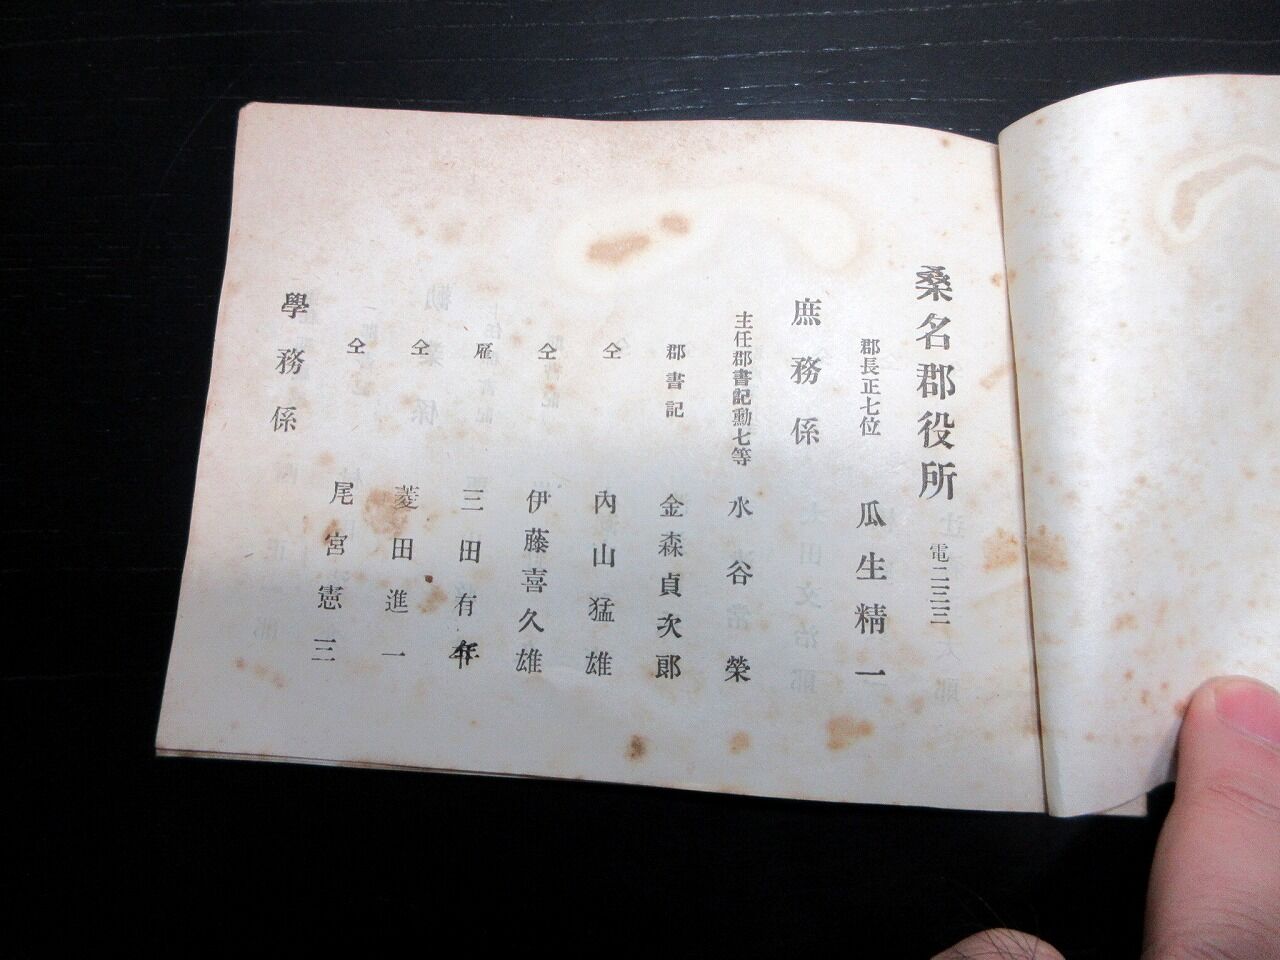 桑名郡役所 電二三三
郡長正七位 瓜生精一
庶務係
主任郡書記勳七等 水谷榮
郡書記 金森貞次郎
仝 內山猛雄
仝 伊藤喜久雄
雇 三田有年
仝 菱田進一
仝 尾宮憲三
學務係